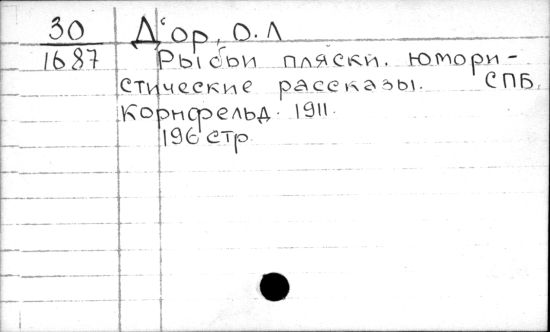 30 Д'ор, О. Л
1687 Рыбьи пляски. юмори-
стические рассказы. СПБ.
Корнфельд. 1911.
196 стр